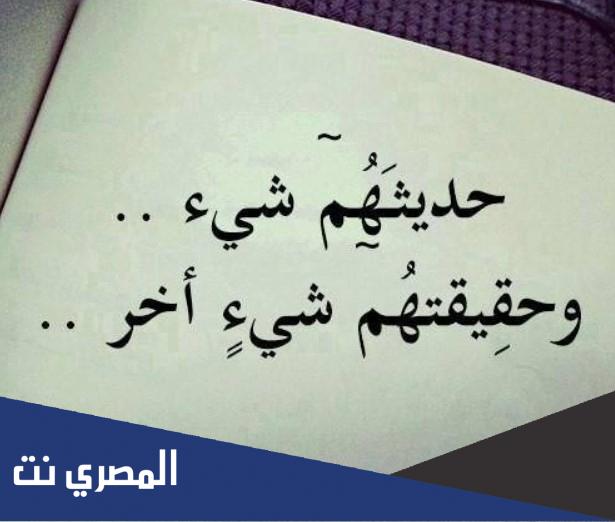 حديثَهُم شيء ..
وحقِيقتهُم شيءٍ أخر ..
المصري نت